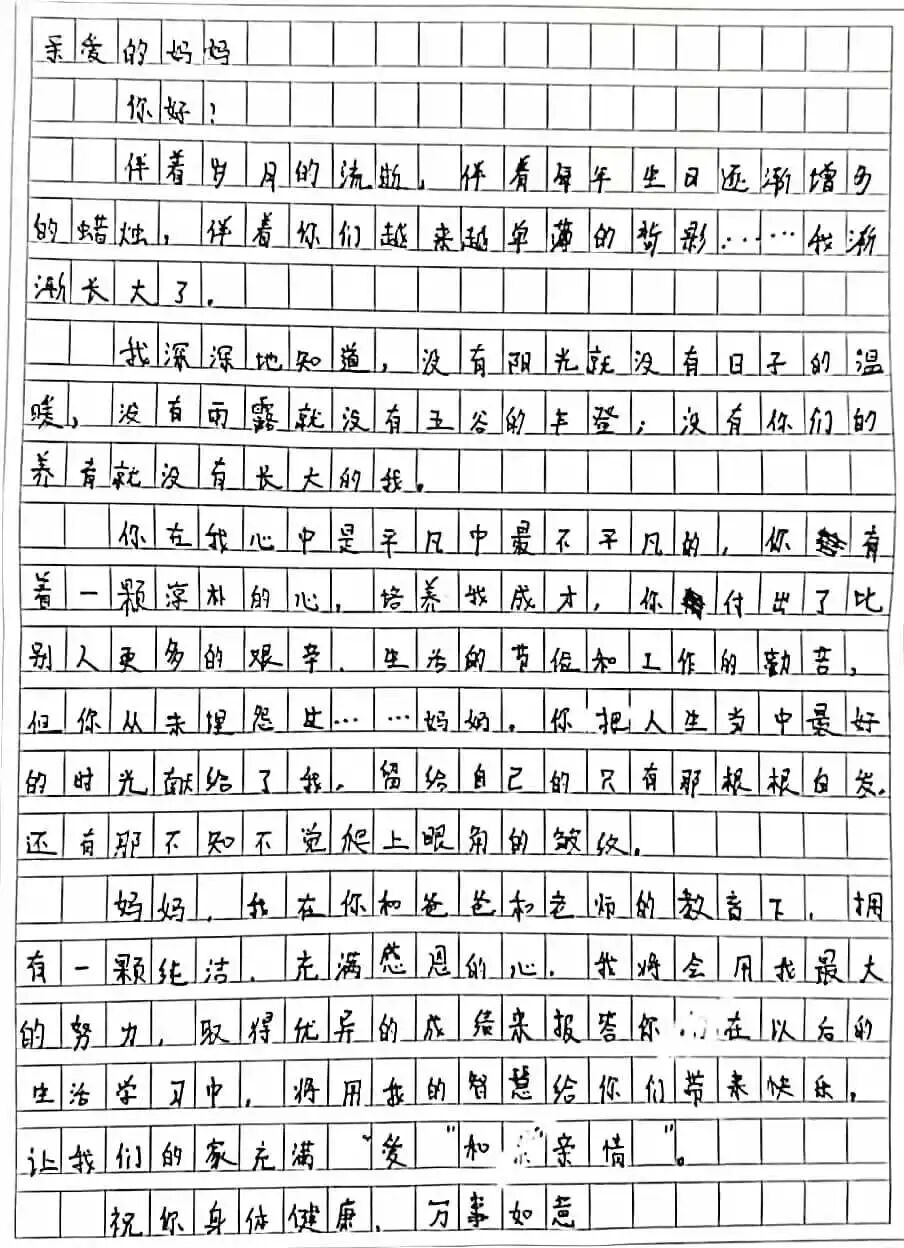 亲爱的妈妈
你好!
伴着岁月的流逝,伴着每年生日逐渐增多
的蜡烛,伴着你们越来越单薄的背影……我渐
渐长大了。
我深深地知道,没有阳光就没有日子的温
暖,没有雨露就没有五谷的丰登;没有你们的
养育就没有长大的我。
你在我心中是平凡中最不平凡的,你有
着一颗淳朴的心,培养我成才,你付出了比
别人更多的艰辛.生活的节俭和工作的勤苦,
但你从未埋怨过……妈妈.你把人生当中最好
的时光献给了我.留给自己的只有那根根白发.
还有那不知不觉爬上眼角的皱纹.
妈妈,我在你和爸爸和老师的教育下,拥
有一颗纯洁.充满感恩的心.我将会用我最大
的努力,取得优异的成绩来报答你 在以后的
生活学习中,将用我的智慧给你们带来快乐,
让我们的家充满"爱"和 亲情"。
祝你身体健康.万事如意